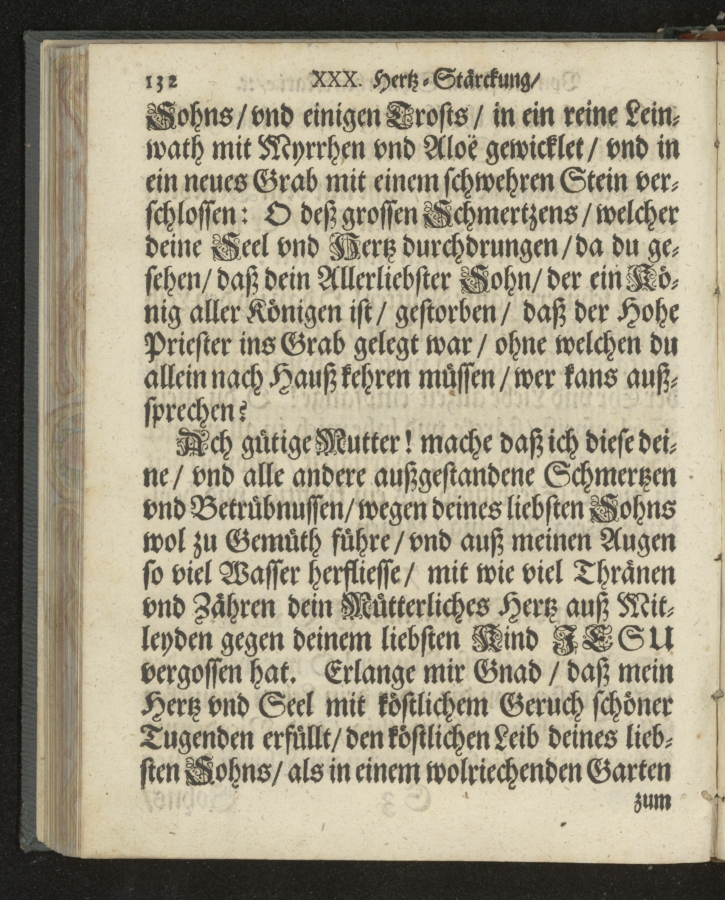 132 XXX. Hertz-Stärckung/
Sohns/ vnd einigen Trosts / in ein reine Lein-
wath mit Myrrhen vnd Aloë gewicklet / vnd in
ein neues Grab mit einem schwehren Stein ver-
schlossen: O deß grossen Schmertzens / welcher
deine Seel vnd Hertz durchdrungen / da du ge-
sehen/ daß dein Allerliebster Sohn/ der ein Kö-
nig aller Königen ist / gestorben / daß der Hohe
Priester ins Grab gelegt war / ohne welchen du
allein nach Hauß kehren müssen / wer kans auß-
sprechen?
Ach gütige Mutter! mache daß ich diese dei-
ne / vnd alle andere außgestandene Schmertzen
vnd Betrübnussen/ wegen deines liebsten Sohns
wol zu Gemüth führe / vnd auß meinen Augen
so viel Wasser herfliesse / mit wie viel Thränen
vnd Zähren dein Mütterliches Hertz auß Mit-
leyden gegen deinem liebsten Kind JESU
vergossen hat. Erlange mir Gnad / daß mein
Hertz vnd Seel mit köstlichem Geruch schöner
Tugenden erfüllt/ den köstlichen Leib deines lieb-
sten Sohns/ als in einem wolriechenden Garten
zum